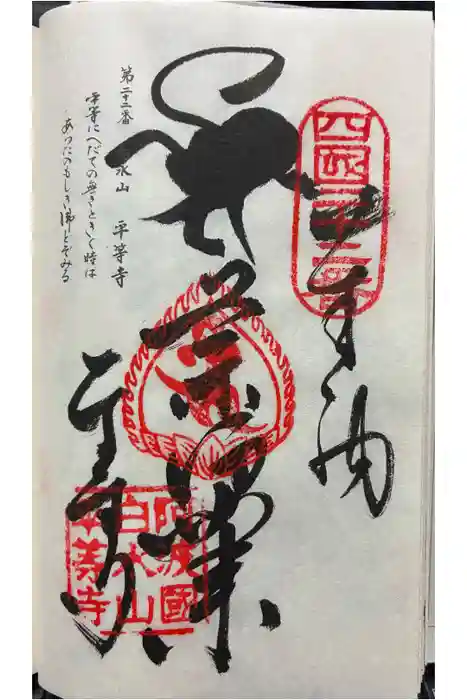 四國二十二番
奉納
平等寺
第二十二番 水山 平等寺
平等にへだての無きときく時は
あらたのもしき佛とぞみる
阿波國
白水山
平等寺